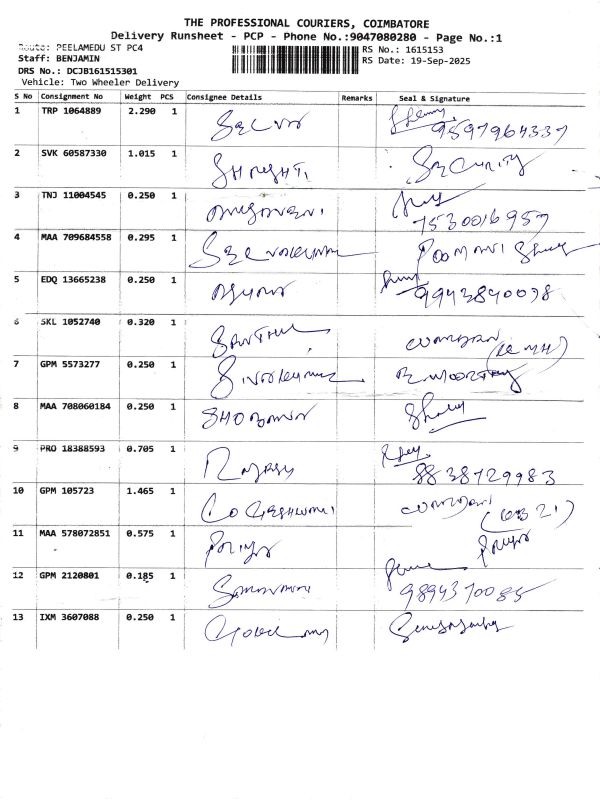 THE PROFESSIONAL COURIERS, COIMBATORE
Delivery Runsheet - PCP - Phone No.:9047080280 - Page No.:1
Route: PEELAMEDU ST PC4
RS No.: 1615153
Staff: BENJAMIN
RS Date: 19-Sep-2025
DRS No.: DCJB161515301
Vehicle: Two Wheeler Delivery
S No Consignment No Weight PCS Consignee Details Remarks Seal & Signature
1 TRP 1064889 2.290 1 SELVA 9597964337
2 SVK 60587330 1.015 1 SHRISHTI SECURITY
3 TNJ 11004545 0.250 1 7530016957
4 MAA 709684558 0.295 1 SELVAKUMAR
5 EDQ 13665238 0.250 1 9943840098
6 SKL 1052740 0.320 1
7 GPM 5573277 0.250 1 SIVAKUMAR R. MOORTHY
8 MAA 708060184 0.250 1 SHOBANA
9 PRO 18388593 0.705 1 RAJESH 8838729983
10 GPM 105723 1.465 1
11 MAA 578072851 0.575 1 PRIYA PRIYA
12 GPM 2120801 0.185 1 9894370085
13 IXM 3607088 0.250 1